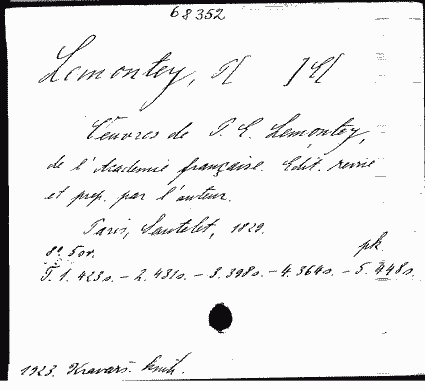 68352
Lemontey, P[ ]E[
Œuvres de P. E. Lemontey,
de l'Academie française. Edit. revue
et prép. par l'auteur.
Paris, Sautelet, 1829.
8º. 5 sv. pk.
T. 1. 423 s. – 2. 431 s. – 3. 398 s. – 4. 364 s. – 5. 448 s.
1923. Kravař. knih.